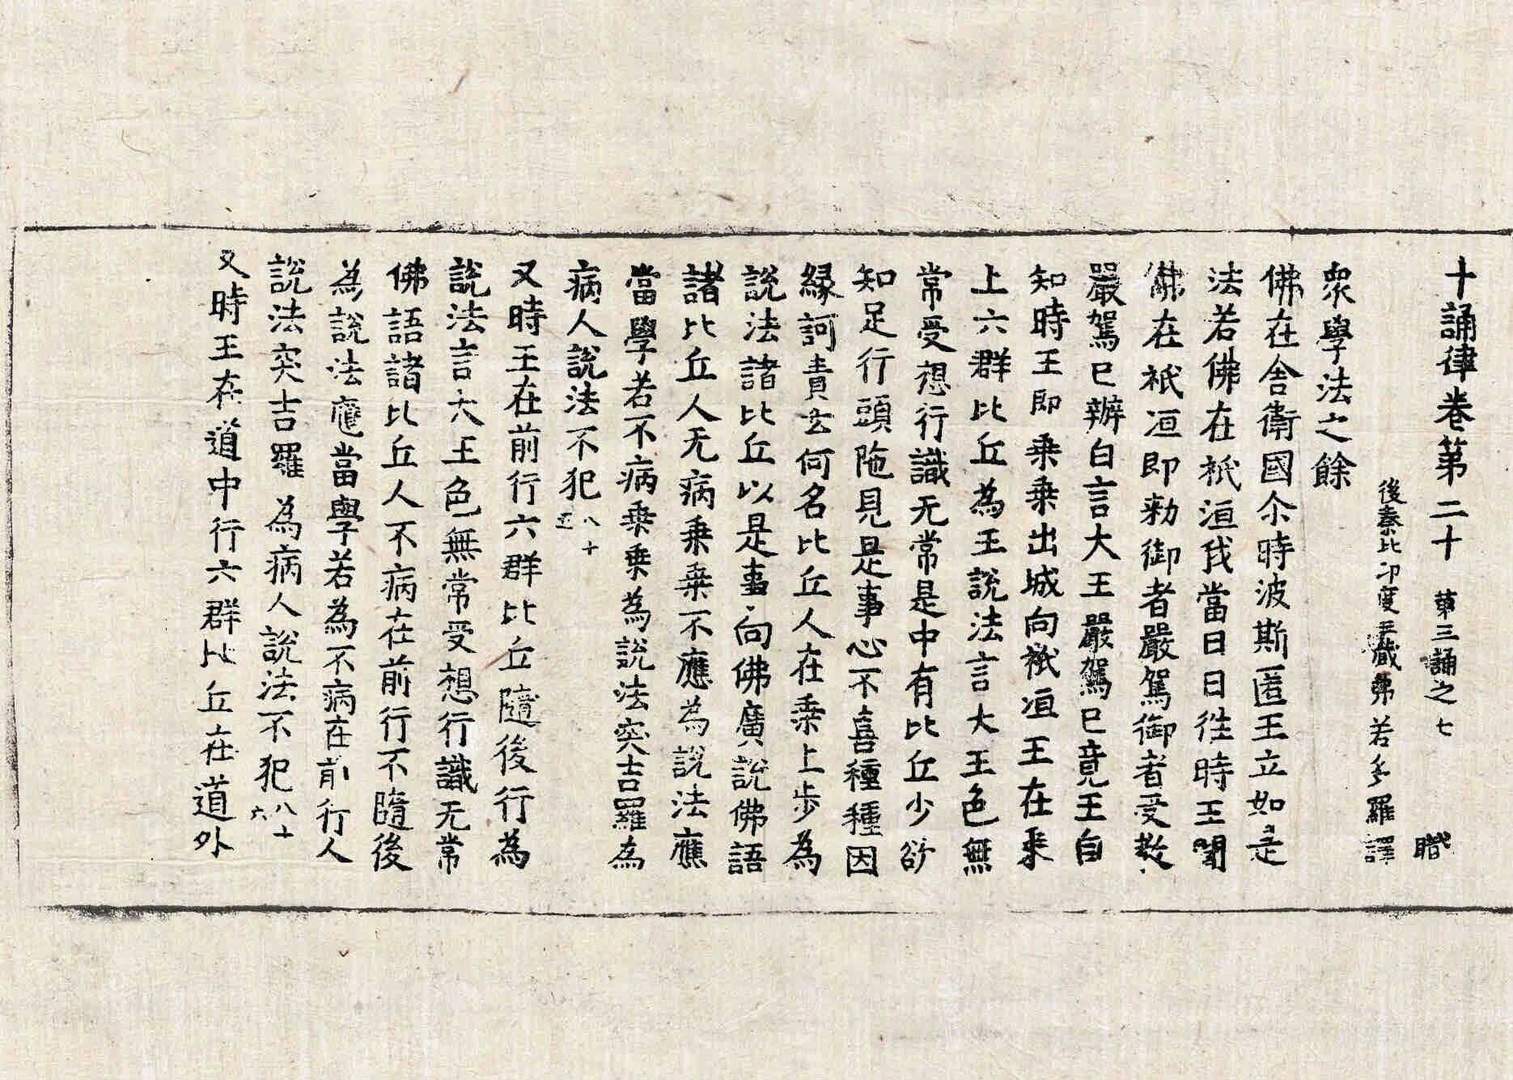 十誦律卷第二十 第三誦之七 職
後秦北印度三藏弗若多羅譯
衆學法之餘
佛在舍衛國尒時波斯匿王立如是
法若佛在衹洹我當日日往時王聞
佛在衹洹即勑御者嚴駕御者受教
嚴駕已辦白言大王嚴駕已竟王自
知時王即乗乗出城向衹洹王在乗
上六群比丘為王說法言大王色無
常受想行識无常是中有比丘少欲
知足行頭陁見是事心不喜種種因
緣訶責云何名比丘人在乗上步為
說法諸比丘以是事向佛廣說佛語
諸比丘人无病乗乗不應為說法應
當學若不病乗乗為說法突吉羅為
病人說法不犯 八十五
又時王在前行六群比丘隨後行為
說法言大王色無常受想行識无常
佛語諸比丘人不病在前行不隨後
為說法應當學若為不病在前行人
說法突吉羅為病人說法不犯 八十六
又時王在道中行六群比丘在道外